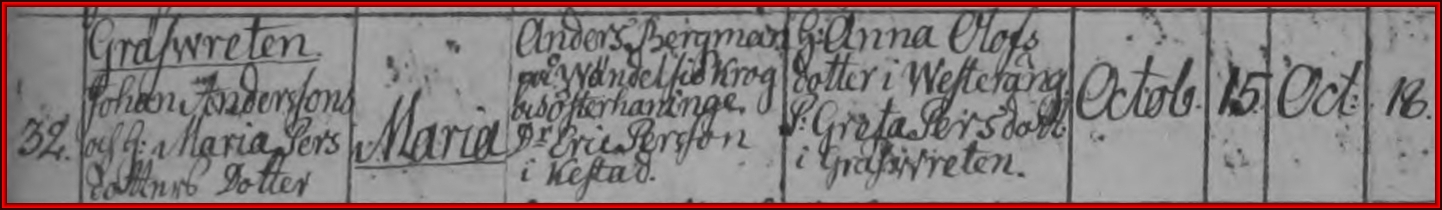 32.
Gräswreten.
Johan Anderssons
och h: Maria Pers
dotters Dotter
Maria
Anders Bergman
på Wändelsiö Krog
Österhaninge.
Dr. Eric Persson
i Kestad.
h: Anna Olofs
dotter i Westeräng.
P: Greta Persdott:
i Gräswreten.
Octob. 15.
Oct: 18.